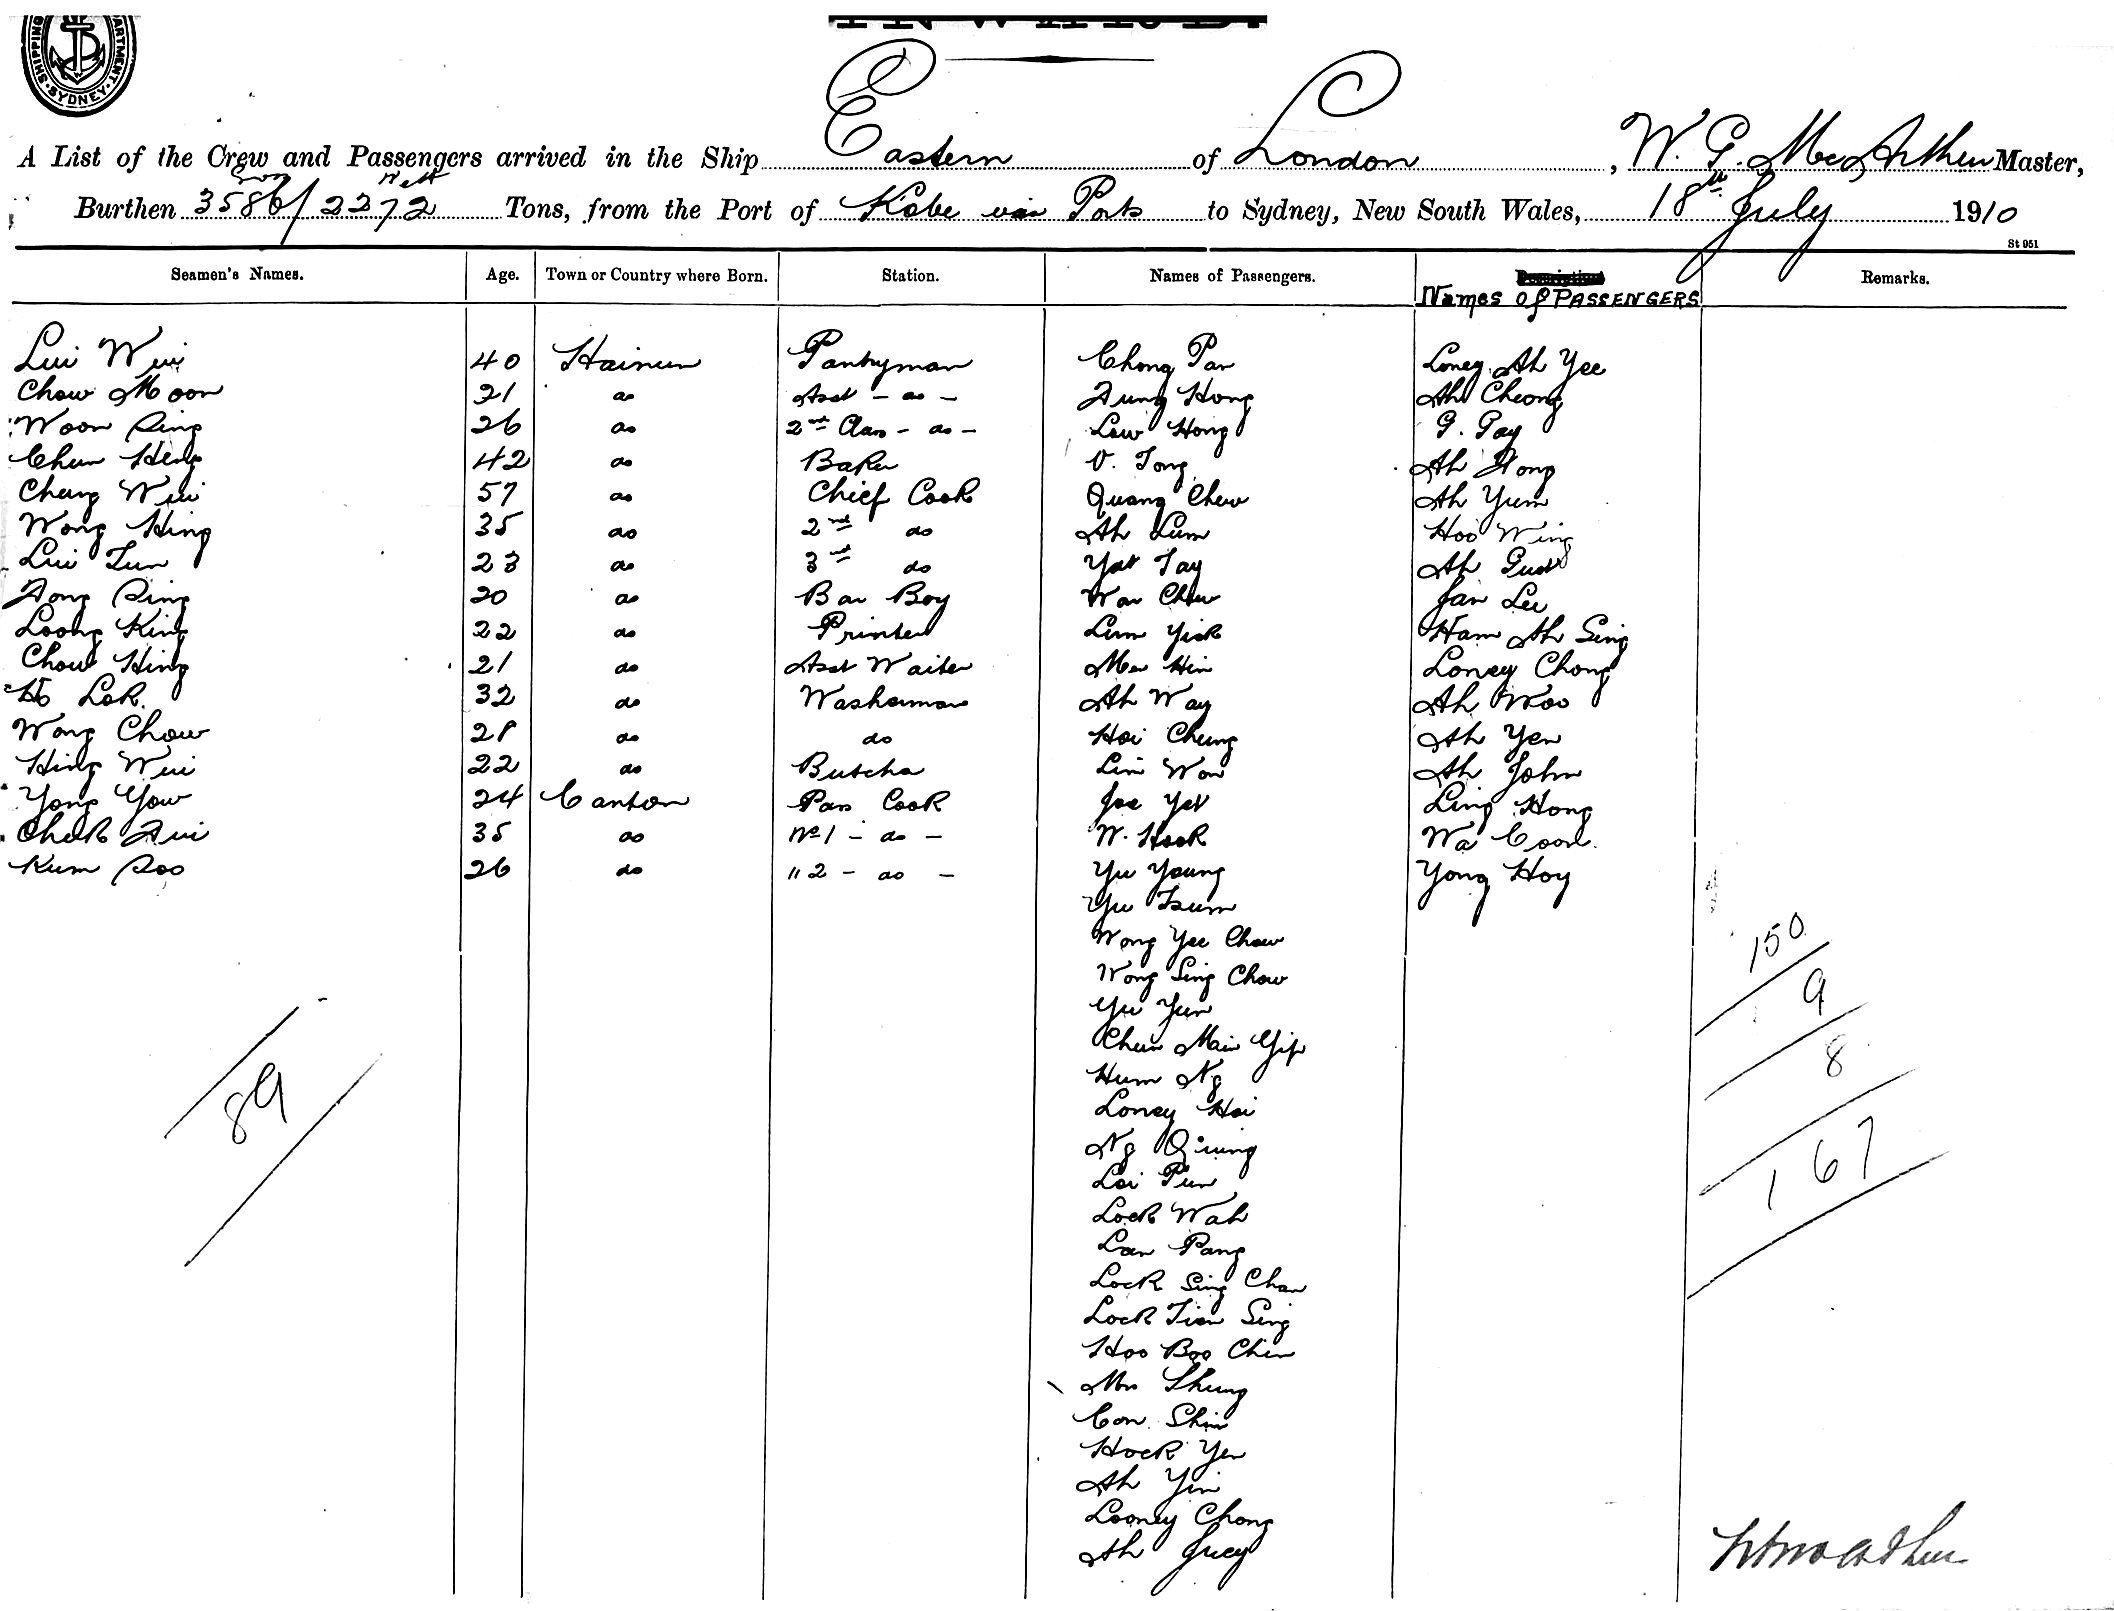 SHIPPING DEPARTMENT SYDNEY
INWARD.
A List of the Crew and Passengers arrived in the Ship Eastern of London, W. G. MacArthur Master,
Burthen 3586 / 2272 Tons, from the Port of Kobe via Ports to Sydney, New South Wales, 18th July 1910
St 951
Seamen's Names. Age. Town or Country where Born. Station. Names of Passengers. Names of PASSENGERS Remarks.
Lui Wui 40 Hainun Pantryman Chong Pan Loney Ah Yee
Chow Moon 21 do Asst - do - Fung Hong Ah Cheong
Woon Sing 26 do 2nd Class - do - Low Hong G. Gay
Chun Heng 42 do Baker V. Tong Ah Hong
Chung Wui 57 do Chief Cook Quang Chew Ah Yum
Wong Hing 35 do 2nd do Ah Lum Hoo Wing
Lui Tun 23 do 3rd do Yat Tay Ah
Fong Sing 20 do Bar Boy War Chew Jan Lee
Loong King 22 do Printer Lum Yick Ham Ah Sing
Chow Hing 21 do Asst Waiter Mar Hin Loney Chong
Ho Lok. 32 do Washerman Ah Way Ah Woo
Wong Chow 28 do do Hoi Cheung Ah Yen
Hing Wui 22 do Butcher Lim Won Ah John
Yong Yow 24 Canton Pass Cook Joe Yet Ling Hong
Chek Fui 35 do No 1 - do - W. Hook Wa Coon.
Kum Soo 26 do " 2 - do - Yu Young Yong Hoy
Yu Tsum
Wong Yee Chow
Wong Sing Chow
Yu Yun
Chun Main Yip
Hum Ng
Loney Hoi
Ng Quing
Loi Pun
Lock Wah
Lan Pang
Lock Sing Chan
Lock Tien Sing
Hoo Boo Chin
Mrs Shung
Con Shin
Hock Yen
Ah Yin
Looney Chong
Ah Juey
150
9
8
167
89